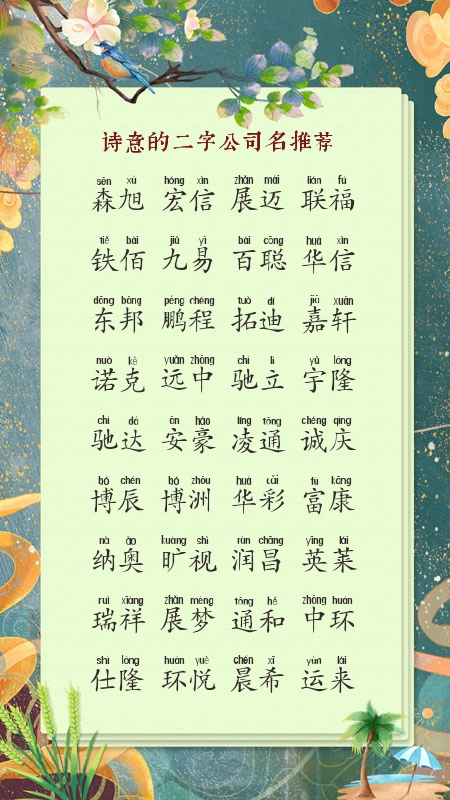 诗意的二字公司名推荐
sēn xù hóng xìn zhǎn mài lián fú
森旭 宏信 展迈 联福
tiě bǎi jiǔ yì bǎi cōng huá xìn
铁佰 九易 百聪 华信
dōng bāng péng chéng tuò dí jiā xuān
东邦 鹏程 拓迪 嘉轩
nuò kè yuǎn zhōng chí lì yǔ lóng
诺克 远中 驰立 宇隆
chí dá ān háo líng tōng chéng qìng
驰达 安豪 凌通 诚庆
bó chén bó zhōu huá cǎi fù kāng
博辰 博洲 华彩 富康
nà ào kuàng shì rùn chāng yīng lái
纳奥 旷视 润昌 英莱
ruì xiáng zhǎn mèng tōng hé zhōng huán
瑞祥 展梦 通和 中环
shì lóng huán yuè chén xī yùn lái
仕隆 环悦 晨希 运来